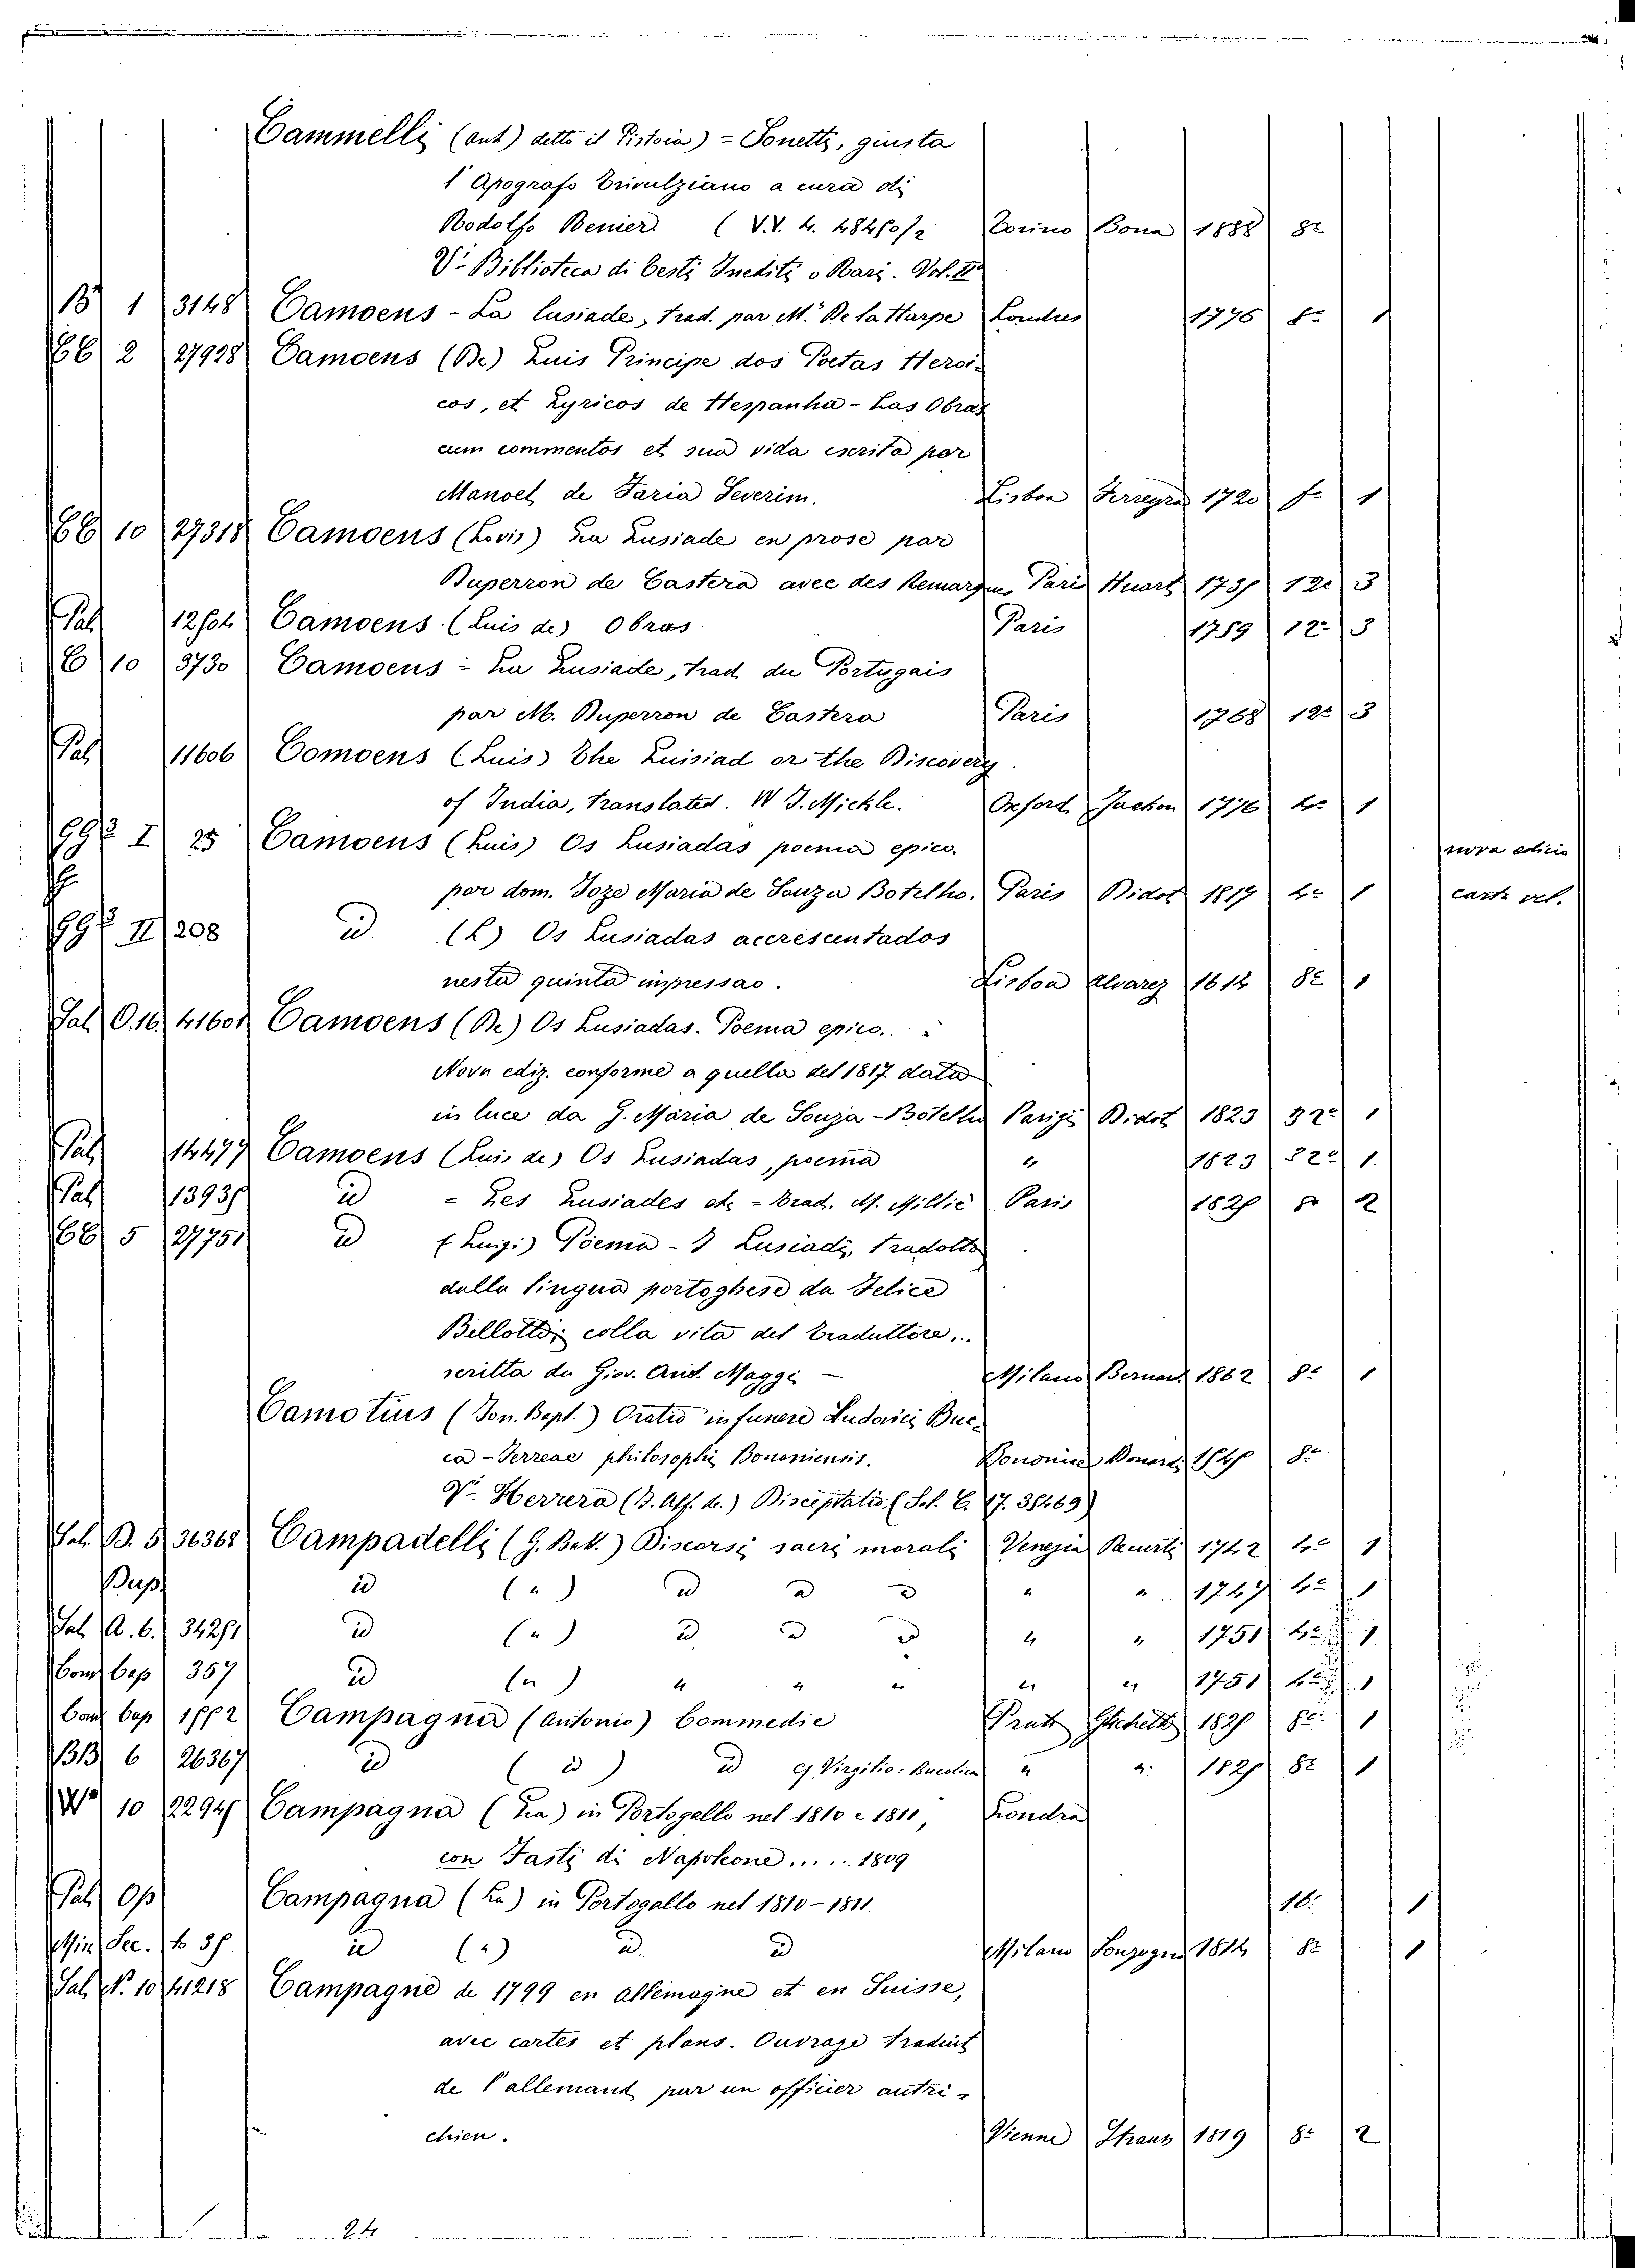 Cammelli (ant) detto il Pistoia) = Sonetti, giusta
l'Apografo Trivulziano a cura di
Rodolfo Renier. ( V.V. 4. 48450/2 Torino Bona 1888 8º
Vi Biblioteca di Testi Inediti o Rari. Vol. II
B 1 3148 Camoens - La lusiade, trad. par M. De la Harpe Londres 1776 8º 1
CC 2 27928 Camoens (De) Luis Principe dos Poetas Heroi-
cos, et Lyricos de Hespanha - Las Obras
cum commentos et sua vida escrita por
Manoel de Faria Severim. Lisboa Ferreyra 1720 fº 1
CC 10. 27318 Camoens (Lovis) La Lusiade en prose par
Duperron de Castera avec des Remarques Paris Huart 1735 12º 3
Pal 12504 Camoens (Luis de) Obras Paris 1759 12º 3
C 10 3730 Camoens = La Lusiade, trad du Portugais
par M. Duperron de Castera Paris 1768 12º 3
Pal 11606 Comoens (Luis) The Luisiad or the Discovery
of India, translated. W J. Mickle. Oxford Jackson 1776 4º 1
99 I 25 Camoens (Luis) Os Lusiadas poema epico. nova edicio
por dom. Joze Maria de Souza Botelho. Paris Didot 1817 4º 1 carta vel.
99 II 208 id (L) Os Lusiadas accrescentados
nesta quinta impressao. Lisboa Alvarez 1614 8º 1
Sal O.16. 41601 Camoens (De) Os Lusiadas. Poema epico.
Nova ediz. conforme a quella del 1817 data
in luce da J. Maria de Souza - Botelho Parigi Didot 1823 32º 1
Pal 14477 Camoens (Luis de) Os Lusiadas, poema " 1823 32º 1.
Pal 13935 id = Les Lusiades etc = Trad. M. Millié Paris 1825 8º 2
CC 5 27751 id (Luigi) Poema - I Lusiadi, tradotto
dalla lingua portoghese da Felice
Bellotti; colla vita del traduttore..
scritta da Giov. Ant. Maggi — Milano Bernard 1862 8º 1
Camotius (Jon. Bapt.) Oratio in funere Ludovici Buc-
ca - Ferreae philosophi Bononiensis. Bononiae 8º
Vi Herrera (J. Alf. de.) Disceptatio (Sal. C. 17. 38469)
Sal. B. 5 36368 Campadelli (G. Bat.) Discorsi sacri morali Venezia Recurti 1742 4º 1
Dup. id (") id id id " " 1747 4º 1
Sal A. 6. 34251 id (") id id id " " 1751 4º 1
Com Cap 357 id (") " " " " " 1751 4º 1
Com Cap 1552 Campagna (Antonio) Commedie Prato Giachetti 1825 8º 1
BB 6 26367 id ( id ) id Cf Virgilio - Bucolica " " 1825 8º 1
W 10 22945 Campagna (La) in Portogallo nel 1810 e 1811, Londra
con Fasti di Napoleone...... 1809
Pal Op Campagna (La) in Portogallo nel 1810 - 1811 16. 1
Min Sec. to 35 id (") id. id Milano Sonzogno 1814 8º 1
Sal N. 10 41218 Campagne de 1799 en allemagne et en Suisse,
avec cartes et plans. Ouvrage traduit
de l'allemand par un officier autri-
chien. Vienne Straus 1819 8º 2
24.